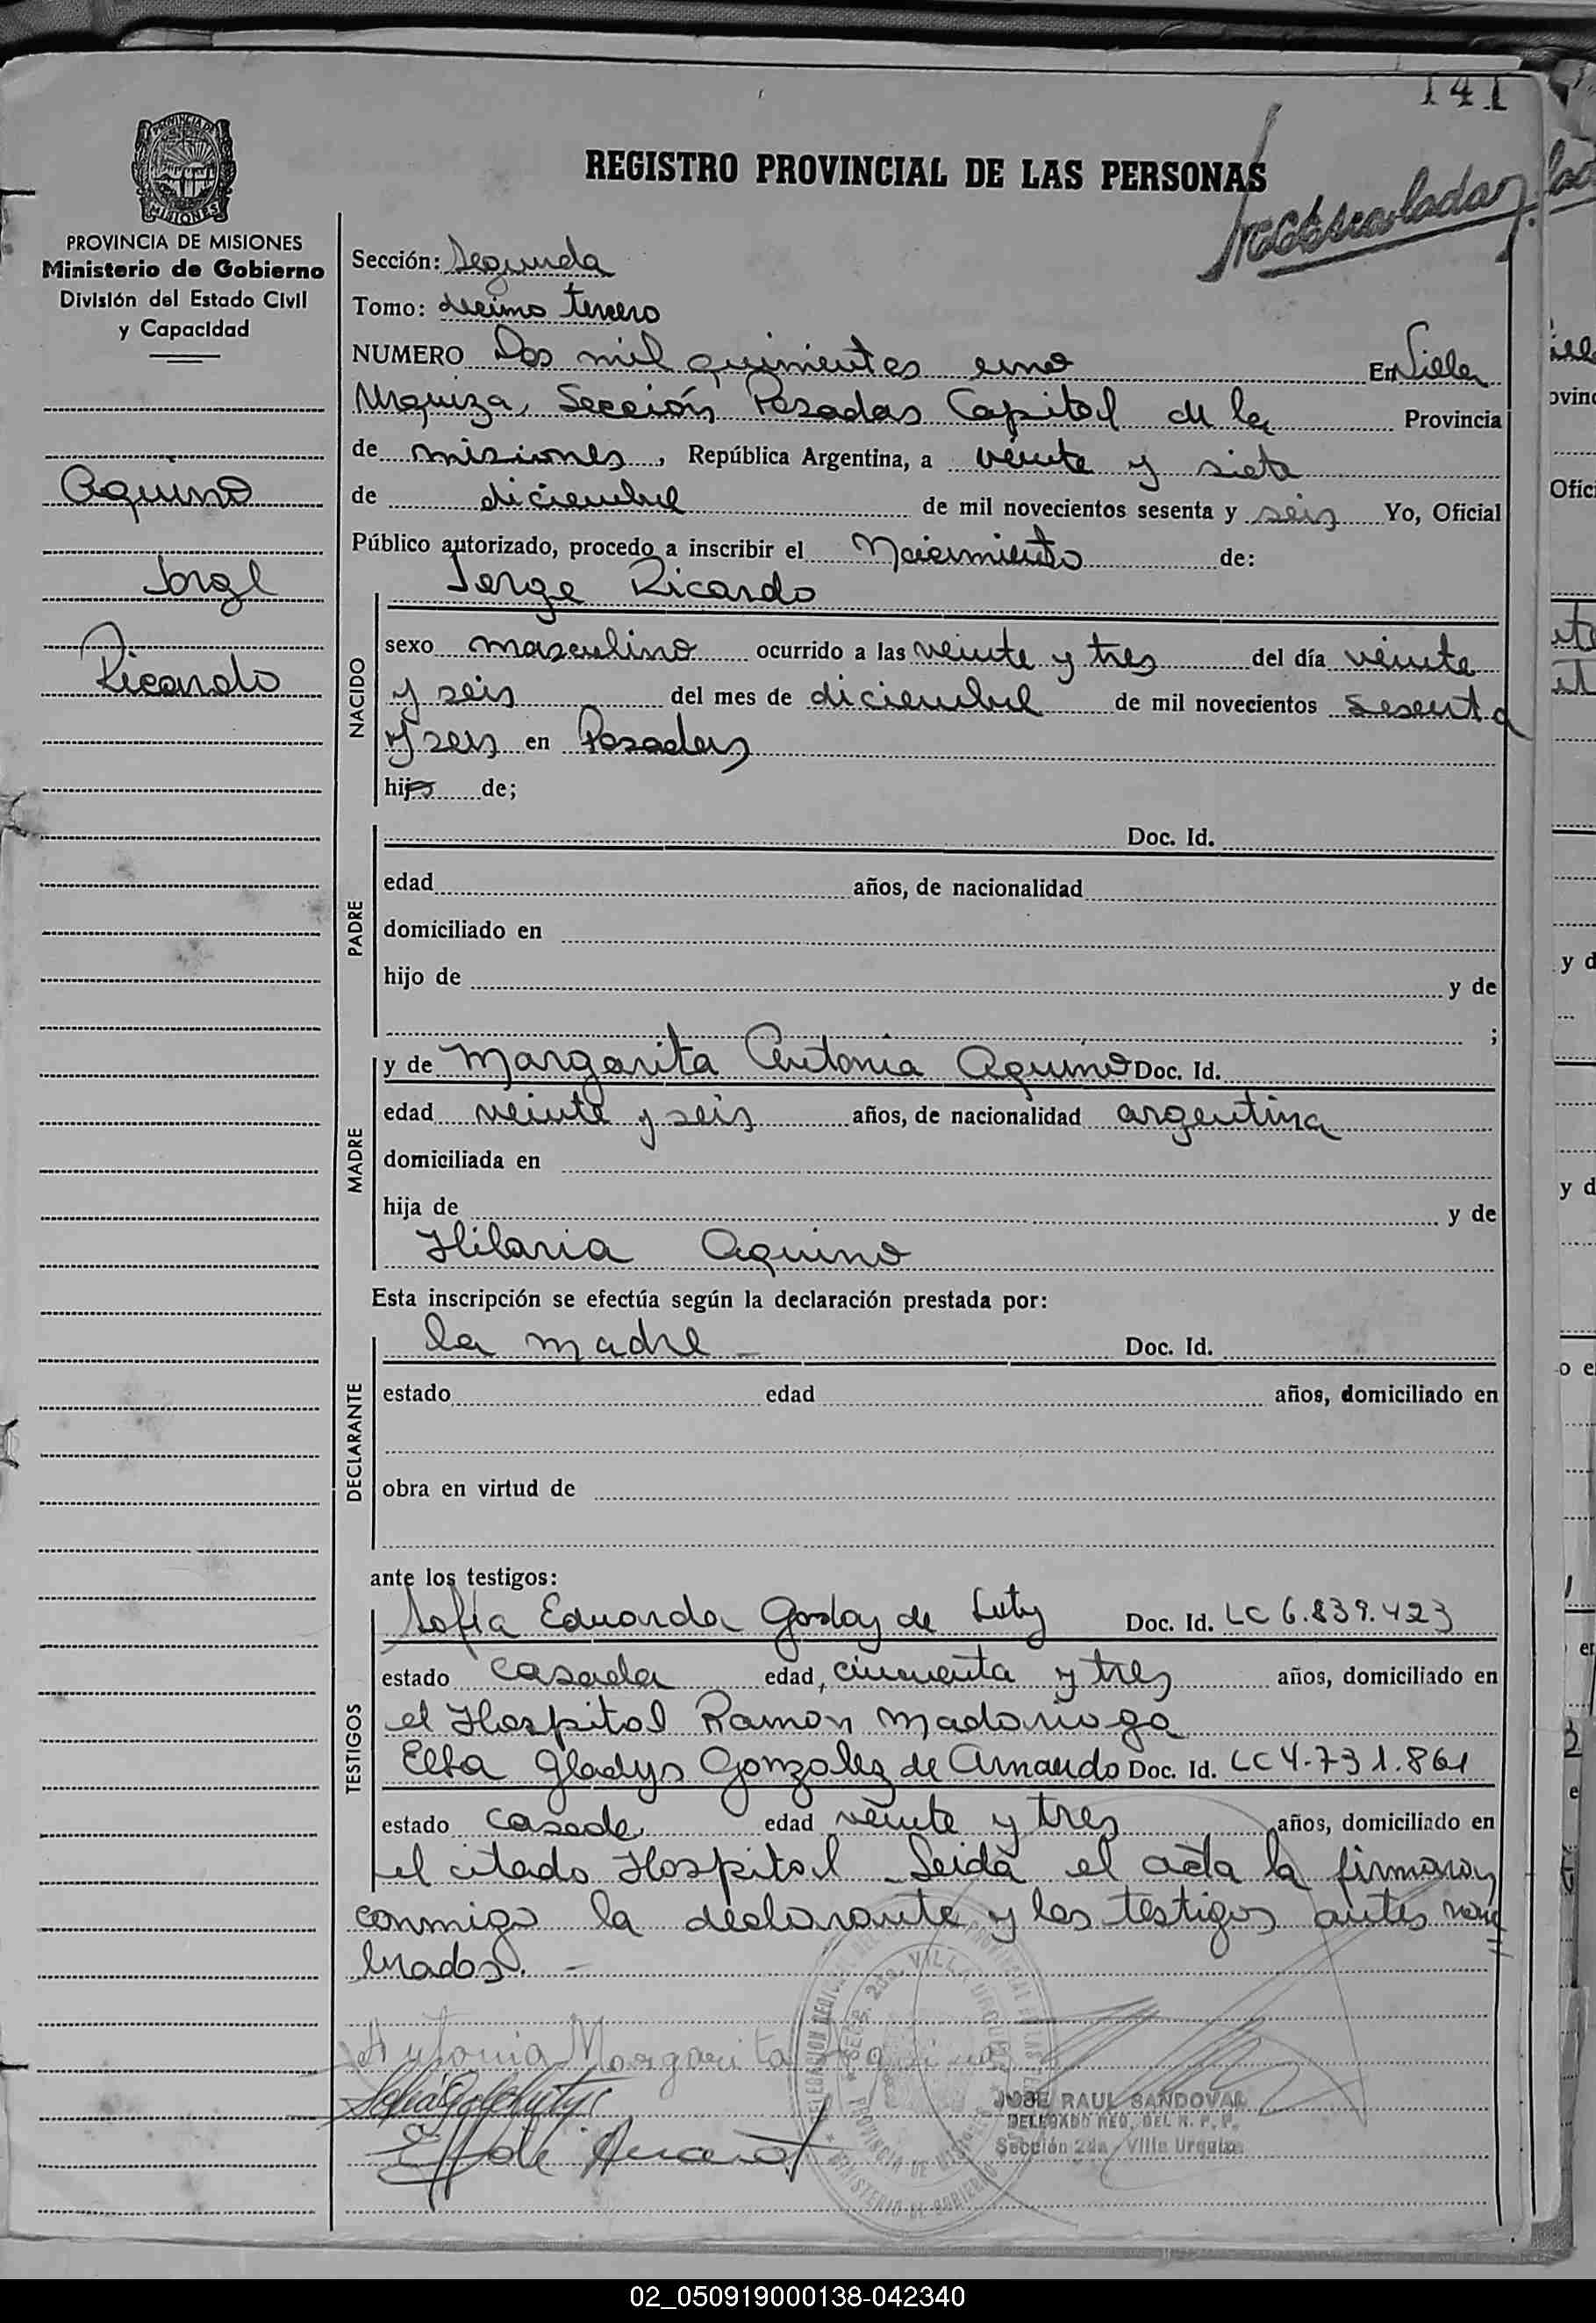 141
REGISTRO PROVINCIAL DE LAS PERSONAS
PROVINCIA DE MISIONES
Ministerio de Gobierno
División del Estado Civil
y Capacidad
Aquino
Jorge
Ricardo
Sección: Segunda
Tomo: decimo tercero
NUMERO Dos mil quinientos uno En Villa
Urquiza, Sección, Posadas Capital de la Provincia
de misiones, República Argentina, a veinte y siete
de diciembre de mil novecientos sesenta y seis Yo, Oficial
Público autorizado, procedo a inscribir el Nacimiento de:
Jorge Ricardo
NACIDO
sexo masculino ocurrido a las veinte y tres del día veinte
y seis del mes de diciembre de mil novecientos sesenta
y seis en Posadas
hijo de;
PADRE
Doc. Id.
edad años, de nacionalidad
domiciliado en
hijo de y de
;
MADRE
y de Margarita Antonia Aquino Doc. Id.
edad veinte y seis años, de nacionalidad argentina
domiciliada en
hija de y de
Hilaria Aquino
Esta inscripción se efectúa según la declaración prestada por:
DECLARANTE
la madre Doc. Id.
estado edad años, domiciliado en
obra en virtud de
ante los testigos:
TESTIGOS
Sofía Eduarda Godoy de Luty Doc. Id. LC 6.839.423
estado casada edad, cincuenta y tres años, domiciliado en
el Hospital Ramon Madariaga
Elba Gladys Gonzalez de Arnaudo Doc. Id. LC 4.731.861
estado casada edad veinte y tres años, domiciliado en
el citado Hospital. Leida el acta la firmaron
conmigo la declarante y los testigos antes nom=
brados. -
Antonia Margarita Aquino
JOSE RAUL SANDOVAL
DELEGADO REG. DEL R. P. P.
Sección 2da Villa Urquiza
02_050919000138-042340